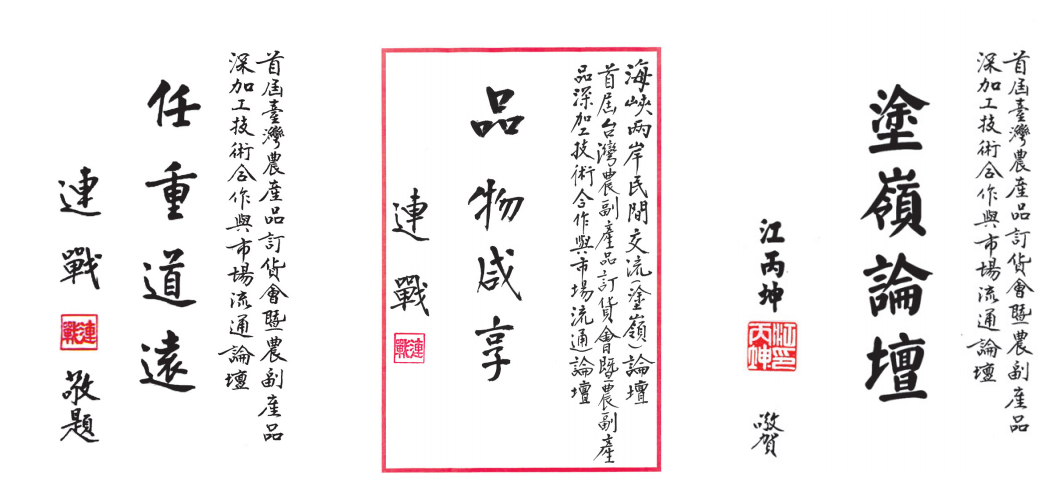 首屆臺灣農產品訂貨會暨農副產品
深加工技術合作與市場流通論壇
塗嶺論壇
江丙坤
江丙坤印
敬賀
海峽兩岸民間交流(塗嶺)論壇
首屆台灣農副產品訂貨會暨農副產
品深加工技術合作與市場流通論壇
品物咸享
連戰
連戰
首屆臺灣農產品訂貨會暨農副產品
深加工技術合作與市場流通論壇
任重道遠
連戰
連戰
敬題